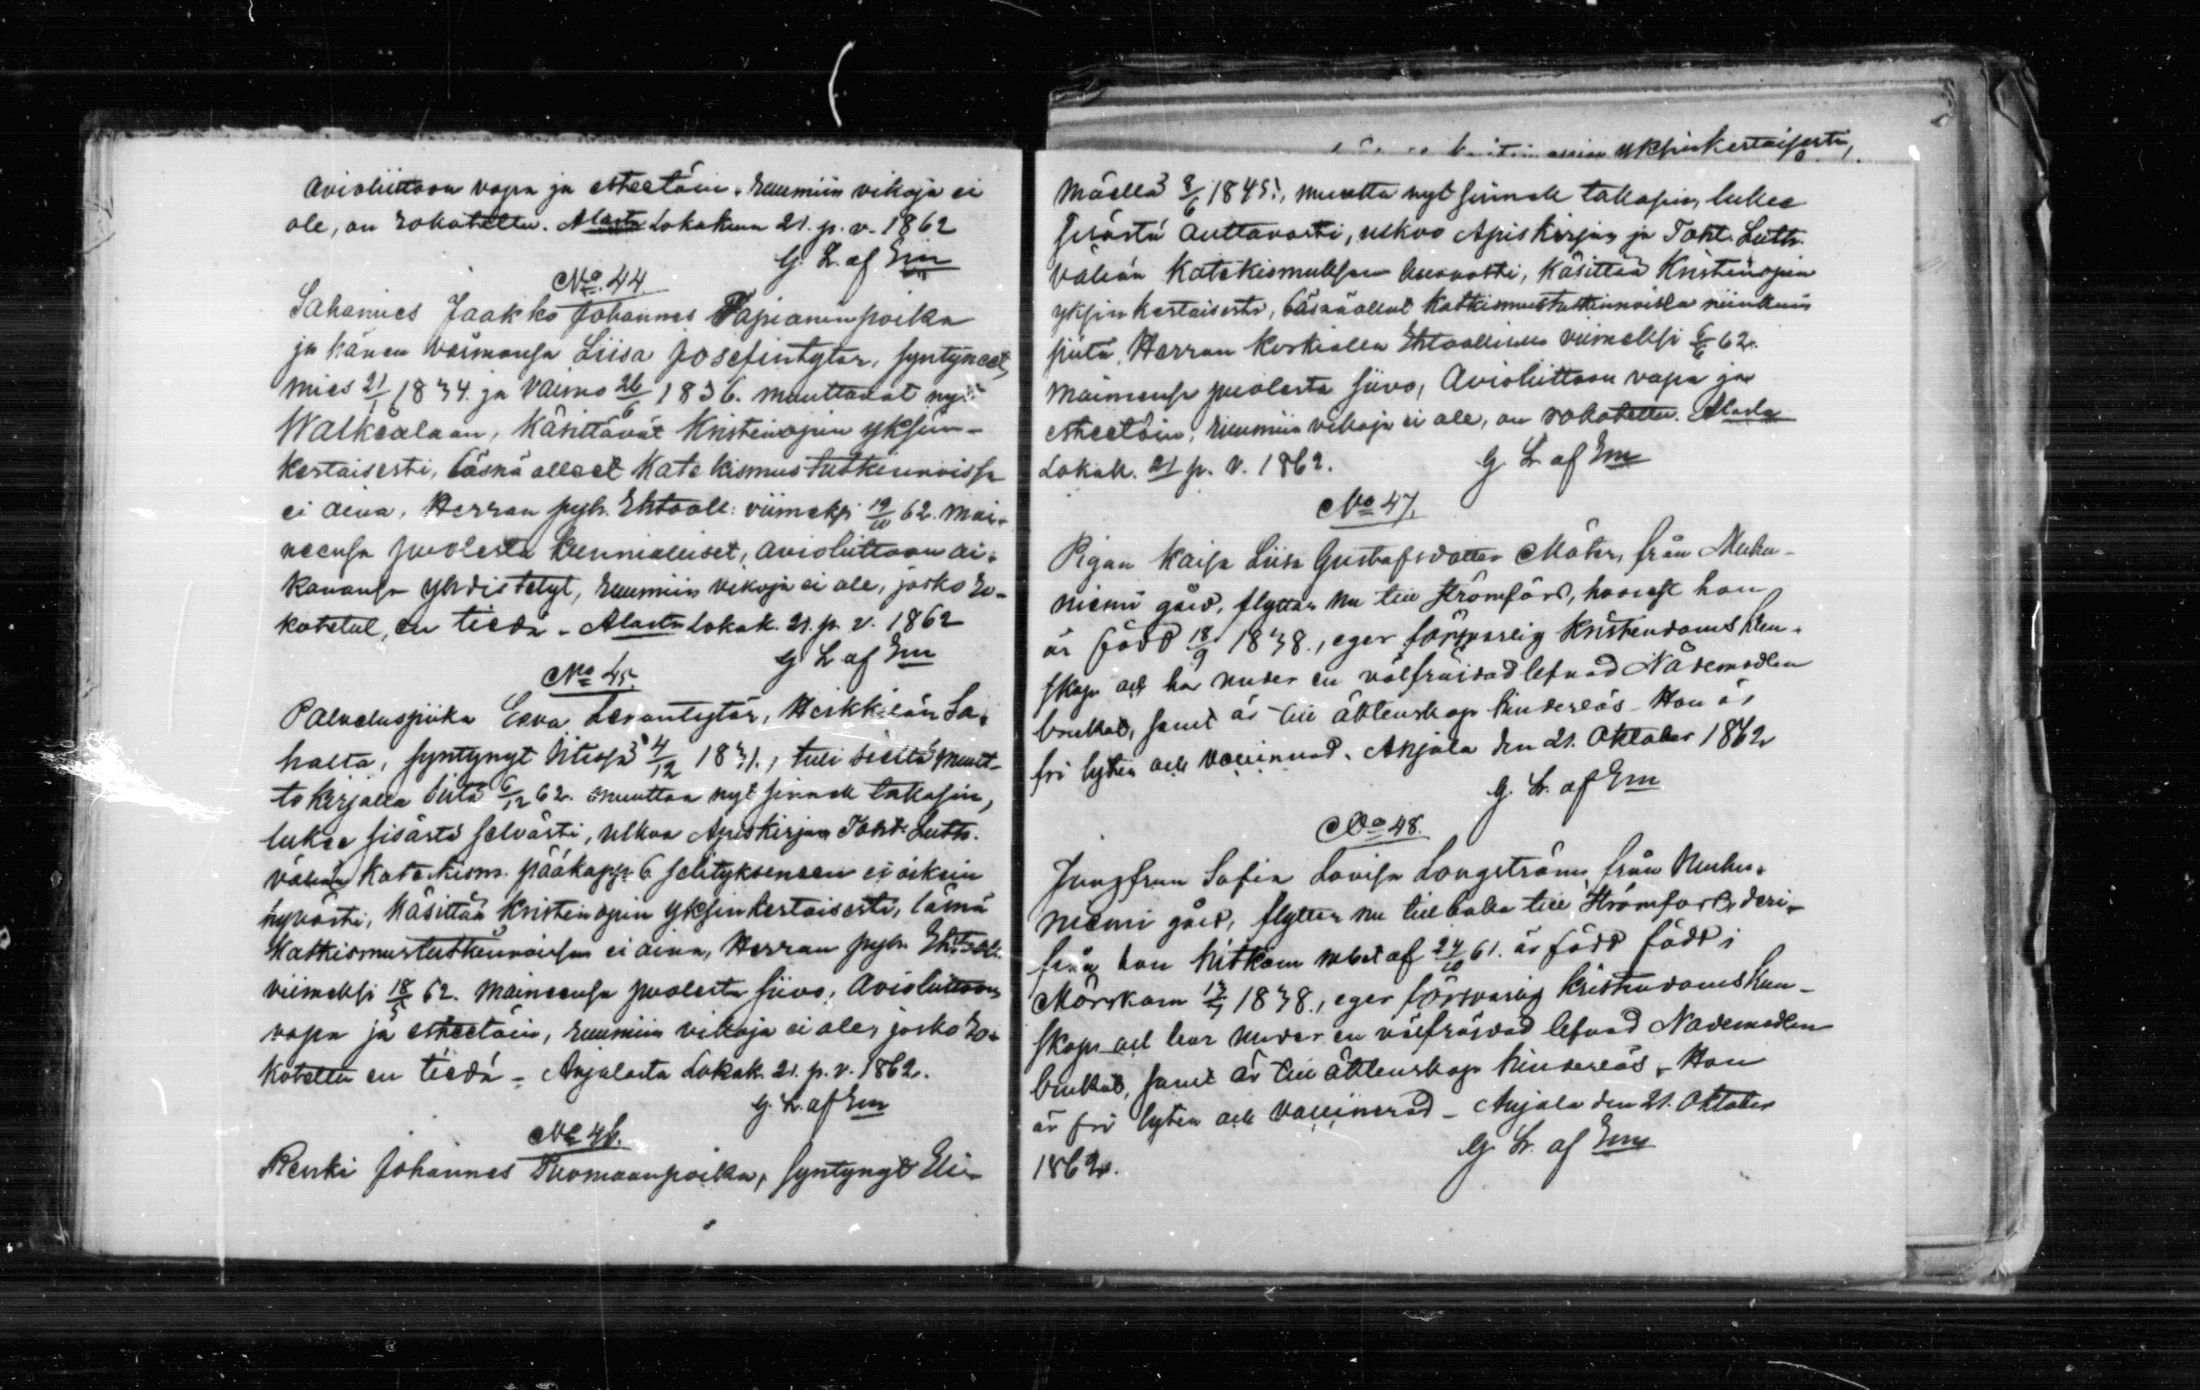 Avioliittoon vapa ja esteetöin, ruumiin vikoja ei
ole, on rokotettu. Alasta Lokakuun 21. p. v. 1862
G. L. af Em
No. 44.
Sahamies Jaakko Johannes Tapianinpoika
ja hänen vaimonsa Liisa Josefintytär, syntyneet,
mies 21/1 1834. ja vaimo 26/6 1836. muuttavat nyt
Walkealaan, käsittävät Kristinopin yksin-
kertaisesti, läsnä olleet Katekismustutkinnoissa
ei aina, Herran pyh. Ehtooll: viimeksi 19/10 62. mai-
neensa puolesta kunnialliset, avioliittoon ai-
kanansa yhdistetyt, ruumiin vikoja ei ole, josko ro-
kotetut, en tiedä - Alasta Lokak. 21. p. v. 1862
G L af Em
No 45.
Palveluspiika Eeva Leenantytär, Heikkilän Sa-
halta, syntynyt Iitissä 4/12 1831., tuli sieltä muut-
tokirjalla siitä 6/12 62. muuttaa nyt sinnek takasin,
lukee sisästä selvästi, ulkoa Apiskirjan Toht. Luth.
vähän Katekism. pääkapp. 6 selityksineen ei oikein
hyvästi, käsittää Kristinopin yksinkertaisesti, läsnä
Katkismustutkinnoissa ei aina, Herran pyh. Ehtooll.
viimeksi 18/5 62. maineensa puolesta siivo, Avioliittoon
vapa ja esteetöin, ruumiin vikoja ei ole, josko ro-
kotettu en tiedä - Anjalasta Lokak. 21. p. v. 1862.
G. L. af Em
No 46.
Renki Johannes Tuomaanpoika, syntynyt Eli-
yksinkertaisesti,
mäellä 8/6 1845., muutta nyt sinnek takasin, lukee
sisästä auttavasti, ulkoo Apiskirjan ja Toht. Luth.
vähän Katekismuksen auvosti, käsittää Kristinopin
yksinkertaisesti, läsnäollut Katkismustutkinnoisa niinkuin
pitä, Herran korkialla Ehtoollisella viimeksi 6/6 62.
maineensa puolesta siivo, Avioliittoon vapa ja
esteetöin, ruumiin vikoja ei ole, on rokotettu. Alasta
Lokak. 21 p. v. 1862.
G. L. af Em
No 47.
Pigan Kaisa Liisa Gustafsdotter Mäter, från Muhu-
niemi gård, flyttar nu till Strömfors, hvarest hon
är född 18/9 1838., eger försvarlig Kristendomskun-
skap och har under en välfräjdad lefnad Nådemedlen
brukat, samt är till äktenskap hinderlös - Hon är
fri lyten och vaccinerad. Anjala den 21. Oktober 1862
G. L. af Em
No 48.
Jungfrun Sofia Lovisa Longström, från Muhu-
niemi gård, flyttar nu tillbaka till Strömfors, deri-
från hon hitkom af 24/10 61. är född född i
Mörskom 13/7 1838., eger försvarlig Kristendomskun-
skap och har under en välfräjdad lefnad Nådemedlen
brukat, samt är till äktenskap hinderlös. Hon
är fri lyten och vaccinerad - Anjala den 21. Oktober
1862.
G. L. af Em